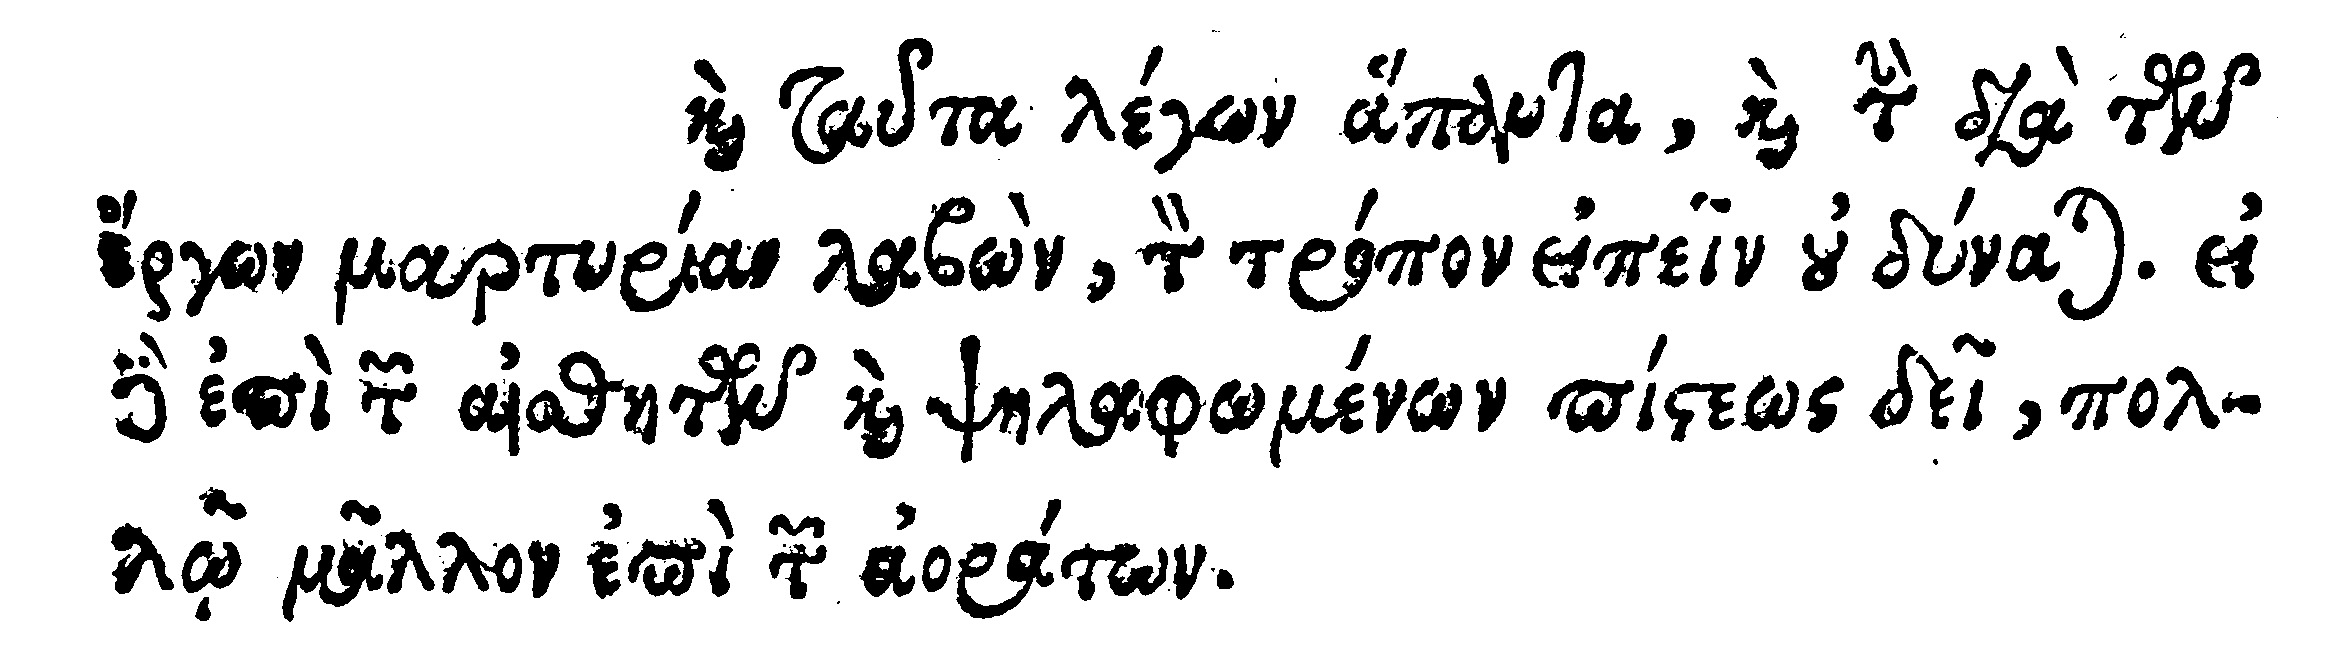 καὶ ταῦτα λέγων ἅπαντα, καὶ τὴν διὰ τῶν
ἔργων μαρτυρίαν λαβὼν, τὸν τρόπον εἰπεῖν οὐ δύναται. εἰ
δὲ ἐπὶ τῶν αἰσθητῶν καὶ ψηλαφωμένων πίστεως δεῖ, πολ-
λῷ μᾶλλον ἐπὶ τῶν ἀοράτων.